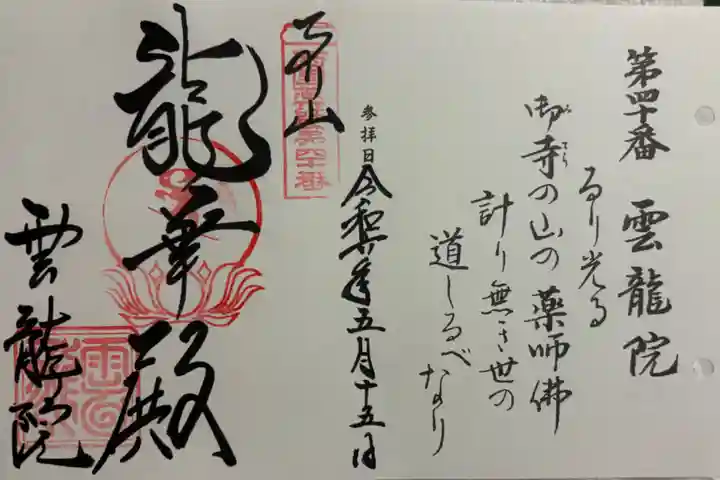 第四十番 雲龍院
るり光る
御寺の山の薬師佛
計り無き世の
道しるべなり
参拝日
令和六年五月十五日
奉拝
龍華殿
雲龍院